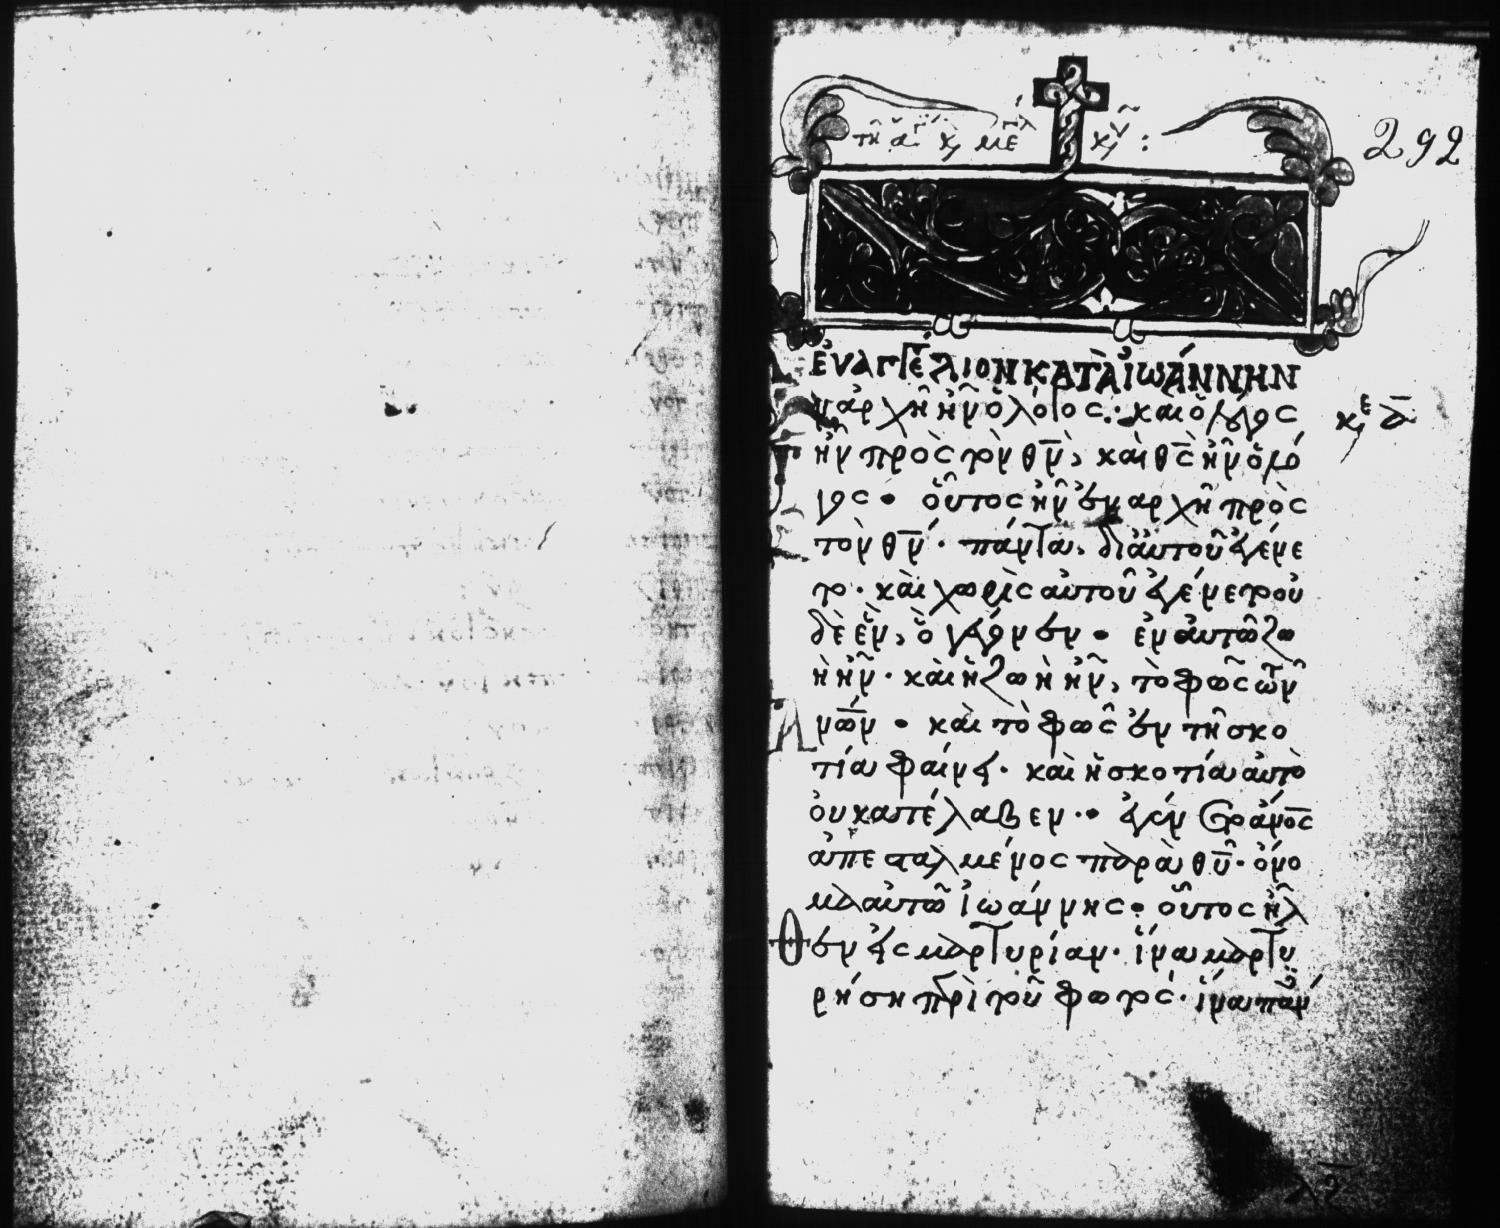 τῆ ἁγί κ μεγλ κυ :
292
ἐυαγγέλιον κατὰ ἰωάννην
ν ἀρχῆ ἦν ὁ λόγος· καὶ ὁ λόγος
κε α
ἦν πρὸς τὸν θν, καὶ θς ἦν ὁ λό
γος • οὗτος ἦν ἐν αρχῆ πρὸς
τὸν θν· πάντα, δι ἀυτοῦ ἐγένε
το· καὶ χωρὶς αὐτοῦ ἐγένετο οὐ
δὲ ἕν, ὃ γέγονεν • ἐν ἀυτῶ ζω
ὴ ἦν· καὶ ἡ ζωὴ ἦν, τὸ φῶς τῶν
ανων • καὶ τὸ φῶς ἐν τῆ σκο
τία φαίνει· καὶ ἡ σκοτία αυτὸ
ὀυ κατέλαβεν • ἐγένετο ἄνος
ἀπεσταλμένος παρὰ θυ· ὄνο
μα αὐτῶ ἰωάννης • οὗτος ἦλ
θεν εἰς μαρτυρίαν· ἵνα μαρτυ
ρήση περὶ τοῦ φωτός· ἵνα πάν